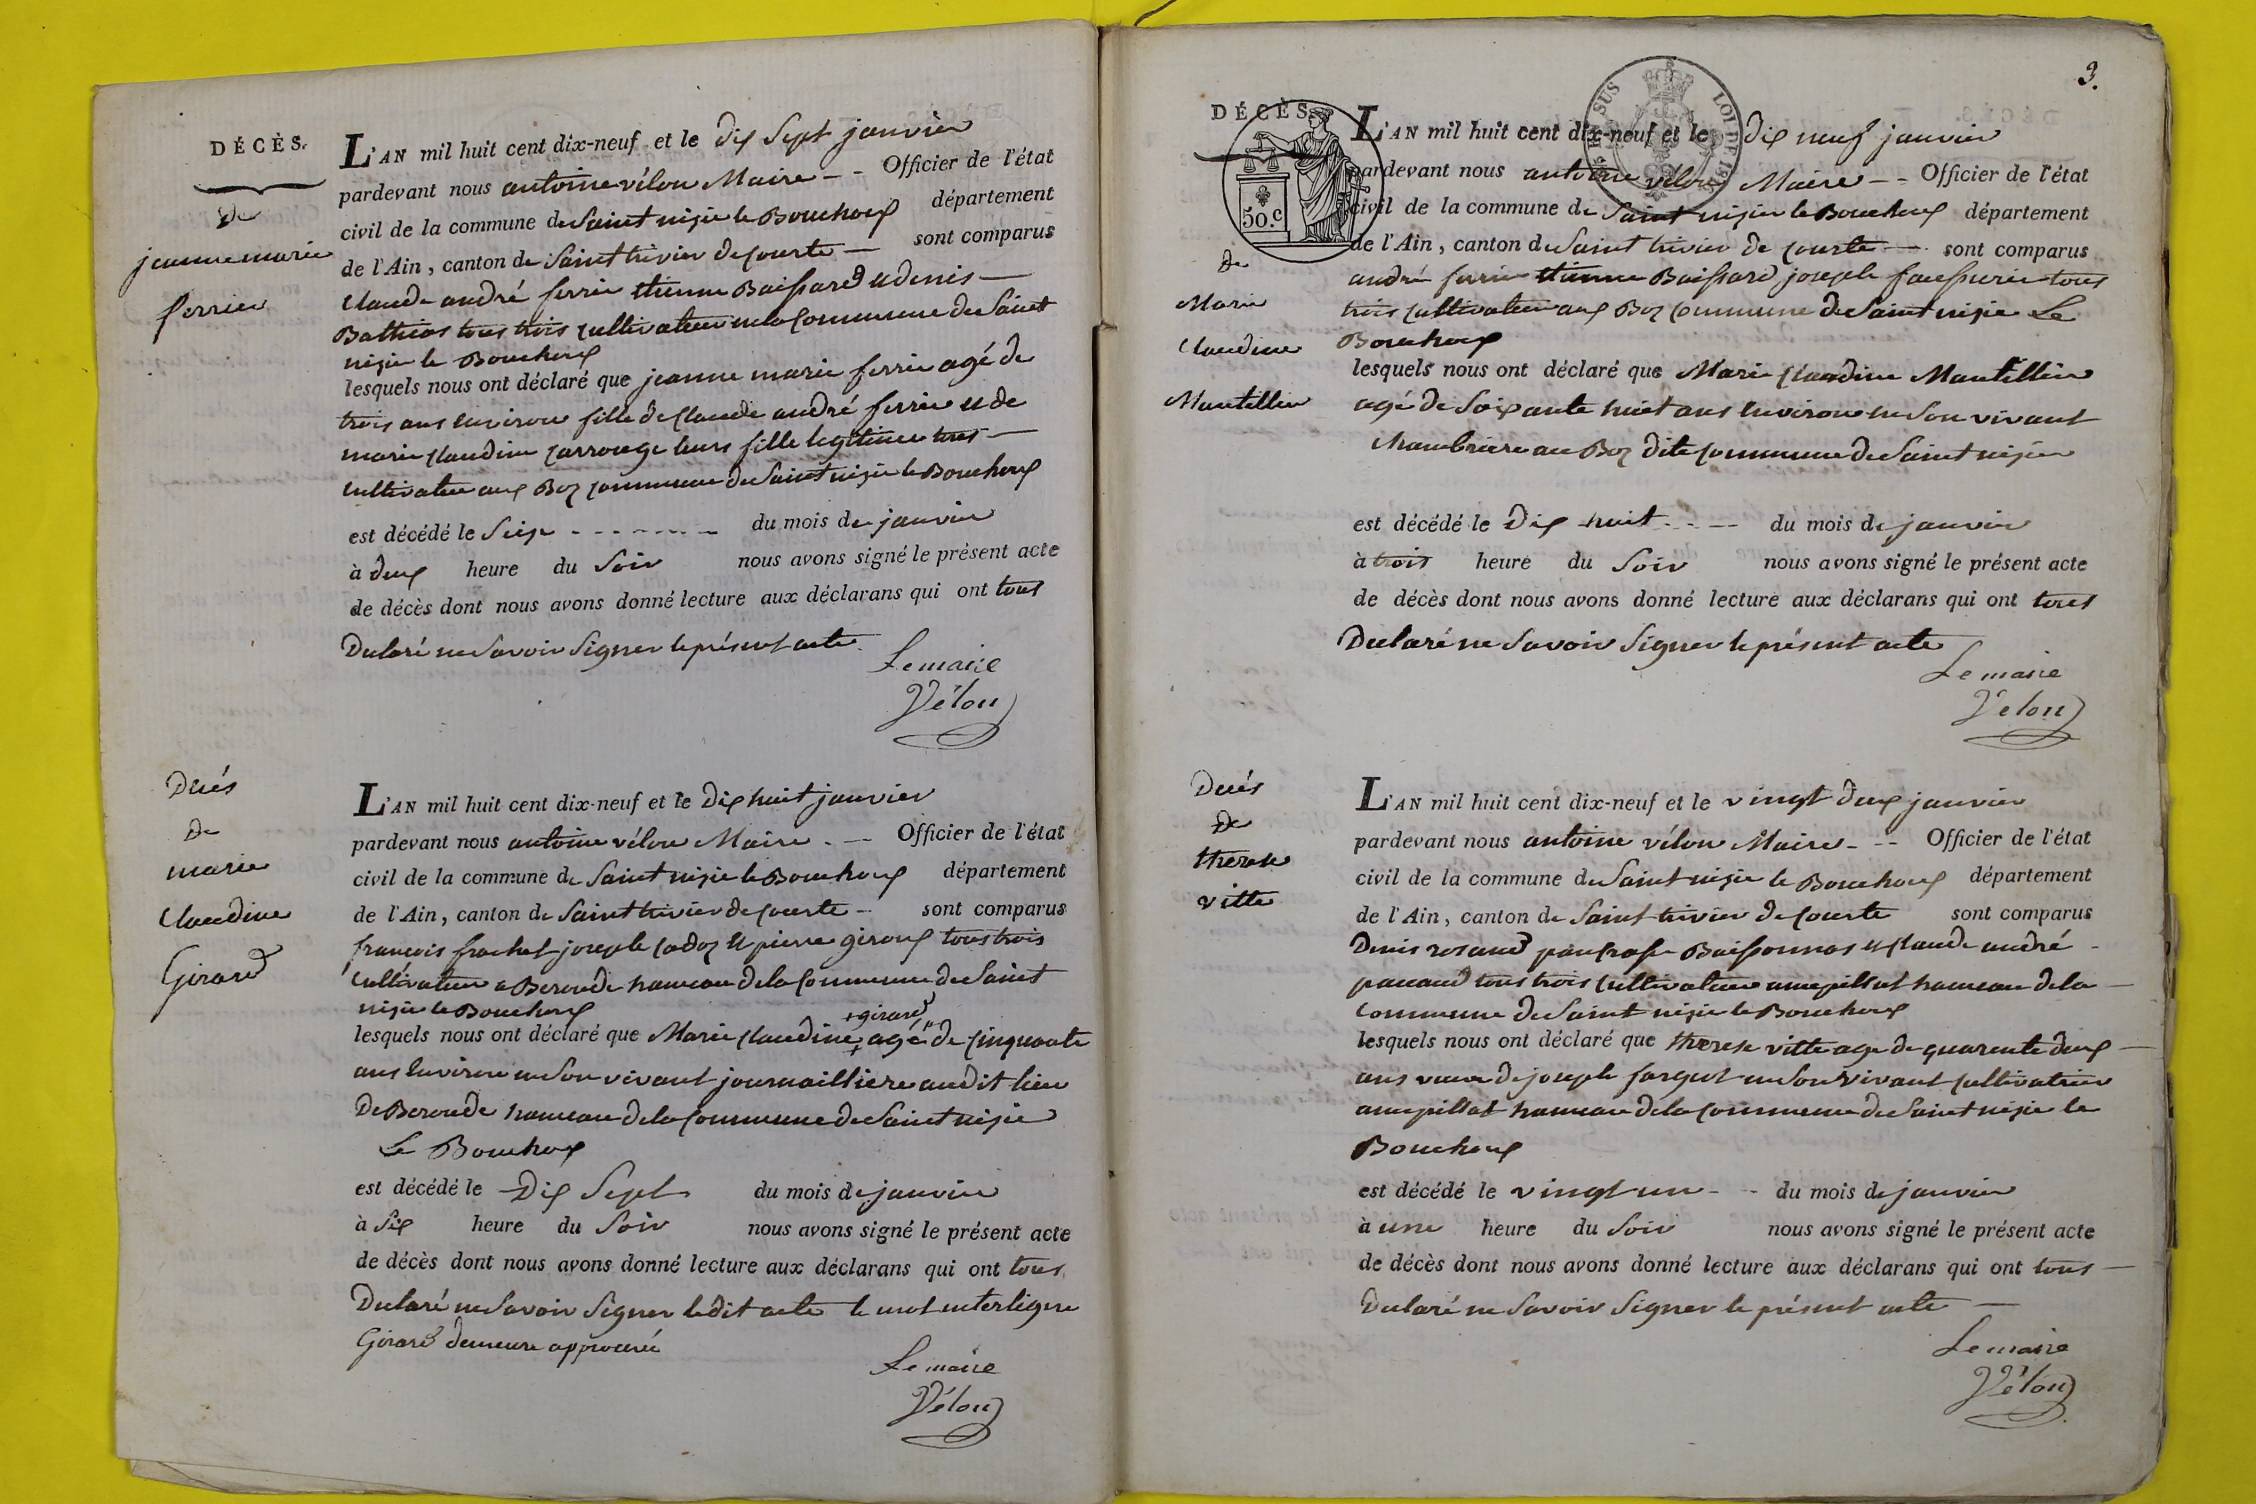 DÉCÈS.
de
jeanne marie
ferrier
L'AN mil huit cent dix-neuf et le dix sept janvier
pardevant nous antoine vélon Maire - - Officier de l'état
civil de la commune de Saint nizie le Bouchoux département
de l'Ain, canton de Saint trivier de Courte - sont comparus
Claude andré ferrie etienne Baissard et denis -
Bathias tous trois cultivateur en la Commune de Saint
nizie le Bouchoux
lesquels nous ont déclaré que jeanne marie ferrie agé de
trois ans environ fille de Claude andré ferrie et de
marie claudine carrouge leurs fille legitime tous -
cultivateur aux Boz commune de Saint nizie le Bouchoux
est décédé le Seize - - - - - - - du mois de janvier
à deux heure du Soir nous avons signé le présent acte
de décès dont nous avons donné lecture aux déclarans qui ont tous
Declaré ne Savoir Signer le présent acte.
Le maire
Vélon
Décés
de
marie
Claudine
Girard
L'AN mil huit cent dix-neuf et le Dix huit janvier
pardevant nous antoine vélon Maire - - Officier de l'état
civil de la commune de Saint nizie le Bouchoux département
de l'Ain, canton de Saint trivier de Courte - sont comparus
françois frachet joseph Cadoz et pierre giroux tous trois
Cultivateur a Beroude hameau de la Commune de Saint
nizie le Bouchoux
+ girard
lesquels nous ont déclaré que Marie Claudine + agé de Cinquante
ans environ en Son vivant journailliere audit lieu
De Beroude hameau de la Commune de Saint nizie
Le Bouchoux
est décédé le Dix Sept du mois de janvier
à Six heure du Soir nous avons signé le présent acte
de décès dont nous avons donné lecture aux déclarans qui ont tous
Declaré ne Savoir Signer ledit acte le mot interligne
Girard demeure approuvé
Le maire
Vélon
3.
DÉCÈS.
50.c
LOI DE
de
Marie
Claudine
Mantillier
L'AN mil huit cent dix-neuf et le dix neuf janvier
pardevant nous antoine vélon Maire - - Officier de l'état
civil de la commune de Saint nizier le Bouchoux département
de l'Ain, canton de Saint trivier de Courte - sont comparus
andré ferrie etienne Baissard joseph tous
trois cultivateur aux Boz Commune de Saint nizie Le
Bouchoux
lesquels nous ont déclaré que Marie Claudine Mantillier
agé de Soixante huit ans environ en Son vivant
chambriere au Boz dite Commune de Saint nizier
est décédé le Dix huit - - - du mois de janvier
à trois heure du Soir nous avons signé le présent acte
de décès dont nous avons donné lecture aux déclarans qui ont tous
Declaré ne Savoir Signer le présent acte
Le maire
Vélon
Décés
De
therese
vitte
L'AN mil huit cent dix-neuf et le vingt deux janvier
pardevant nous antoine vélon Maire - - - Officier de l'état
civil de la commune de Saint nizie le Bouchoux département
de l'Ain, canton de Saint trivier de Courte sont comparus
Denis rosand pancrasse Baissonnas et Claude andré -
pauaud tous trois Cultivateur hameau de la -
Commune de Saint nizie le Bouchoux
lesquels nous ont déclaré que therese vitte agé de quarente deux -
ans veuve de joseph farguet en Son vivant Cultivatrice
hameau de la Commune de Saint nizie le
Bouchoux
est décédé le vingt un - - du mois de janvier
à une heure du Soir nous avons signé le présent acte
de décès dont nous avons donné lecture aux déclarans qui ont tous -
Declaré ne Savoir Signer le présent acte -
Le maire
Vélon